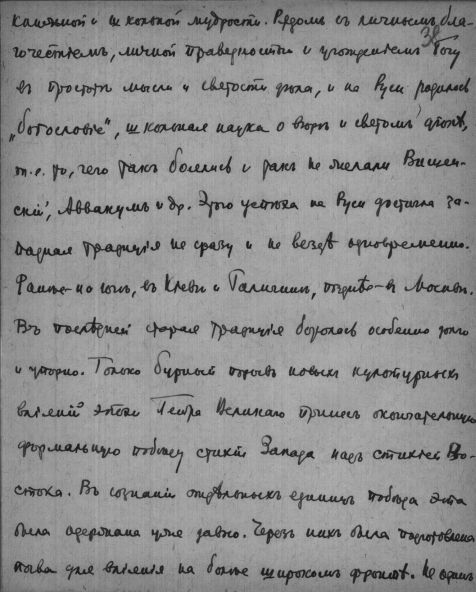 книжной и школьной мудрости. Рядомъ съ личнымъ бла-
38
гочестіемъ, личной праведностью и угожденіемъ Богу
въ простотѣ мысли и святости духа, и на Руси родилось
„богословіе", школьная наука о вѣрѣ и святомъ
т.е. то, чего такъ боялись и такъ не желали Вишен-
скій, Аввакумъ и др. Этого успѣха на Руси достигла за-
падная традиція не сразу и не вездѣ одновременно.
Раньше на югѣ, въ Кіевѣ и Галичинѣ, позднѣе въ Москвѣ.
Въ послѣдней старая традиція боролась особенно долго
и упорно. Только бурный порывъ новыхъ культурныхъ
вліяній эпохи Петра Великаго принесъ окончательную
формальную побѣду стихіи Запада надъ стихіей Во-
стока. Въ сознаніи отдѣльныхъ единицъ побѣда эта
была одержана уже давно. Черезъ нихъ была подготовлена
почва для вліянія на болѣе широкомъ фронтѣ. Не одинъ